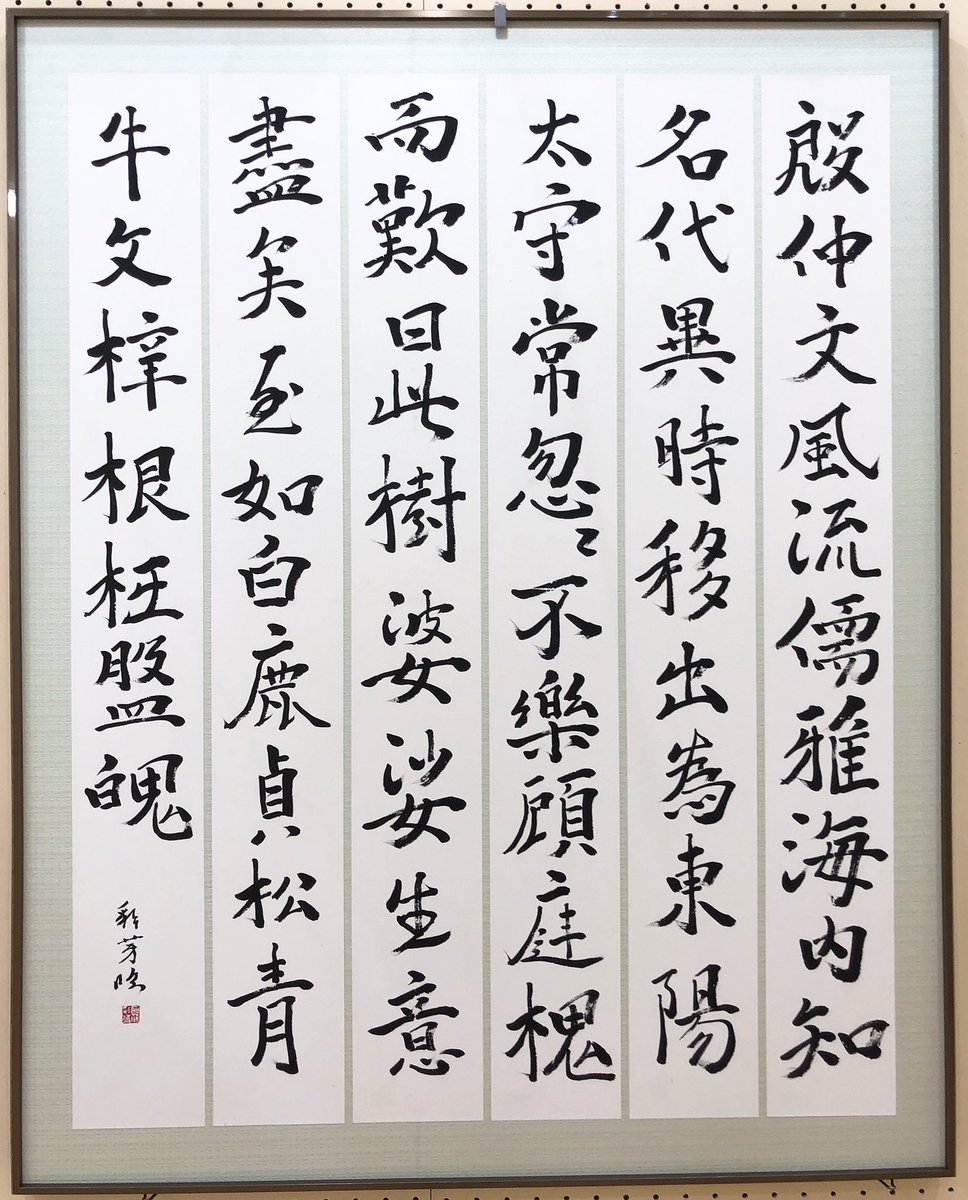 殷仲文風流儒雅海内知
名代異時移出為東陽
太守常忽〻不樂顧庭槐
而歎曰此樹婆娑生意
盡矣至如白鹿貞松青
牛文梓根柢盤魄
彩芳臨